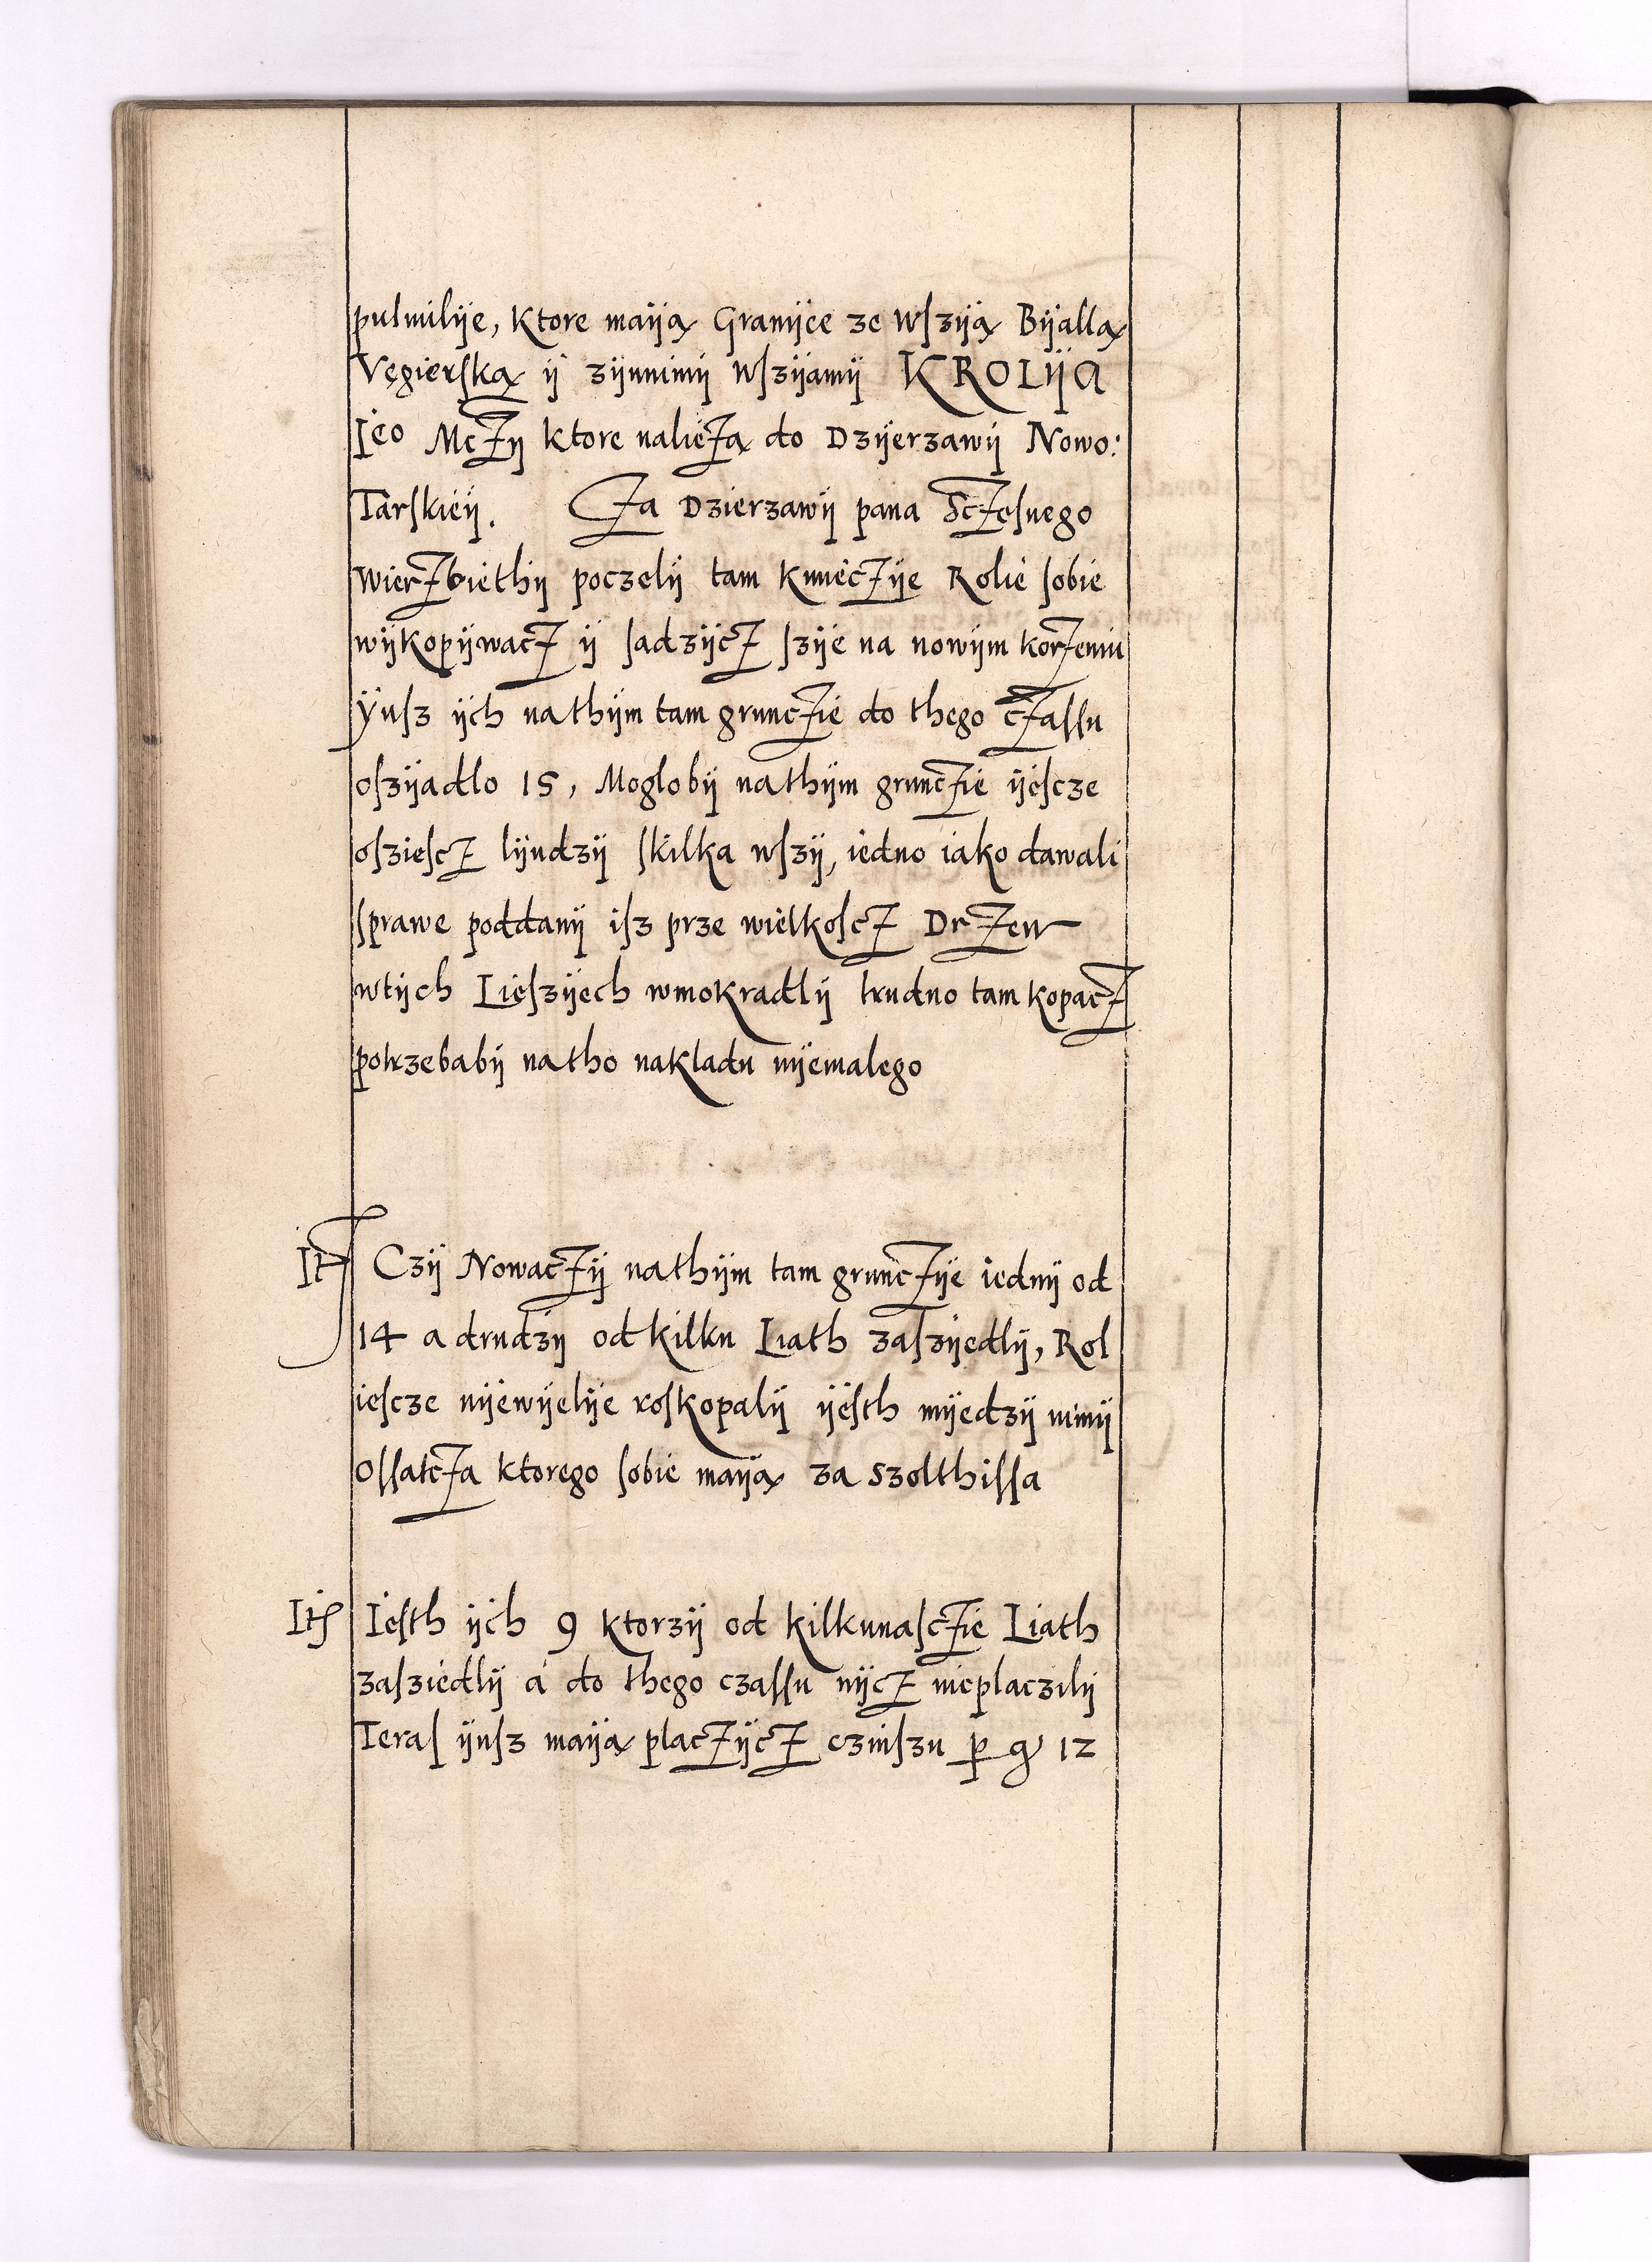 pulmilÿe, Ktore maÿą Granÿce ze Wſzÿą Bÿallą
Vęgierſką ÿ zÿnnimÿ Wſzÿamÿ KROLÿA
Jeo Mczÿ Ktore należą do Dzÿerzawÿ Nowo:
Tarſkieÿ. Za Dzierzawÿ pana Sczęſnego
Wierzbiethÿ poczelÿ tam Kmieczÿe Rolie ſobie
wÿkopÿwacz ÿ ſadzÿcz ſzÿe na nowÿm korzeniu
Ÿuſz ÿch na thÿm tam grunczie do thego czaſſu
oſzÿadlo 15, Moglobÿ na thÿm grunczie ÿeſcze
oſzieſcz lÿudzÿ ſkilka wſzÿ, iedno iako dawali
ſprawe poddanÿ iſz prze wielkoſcz Drzew
wtÿch Lieſzÿech wmokradlÿ trudno tam kopacz
potrzebabÿ na tho nakladu nÿemalego
It Czÿ Nowaczÿ na thÿm tam grunczÿe iednÿ od
14 a drudzÿ od kilku Liath zaſzÿedlÿ, Rol
ieſcze nÿewÿelÿe roſkopalÿ ÿeſth mÿedzÿ nimÿ
Oſſatcza ktorego ſobie maÿą za szolthiſſa
It Ieſth ÿch 9 ktorzÿ od kilkunaſczie Liath
zaſziedlÿ a do thego czaſſu nÿcz nieplaczilÿ
Teraſ ÿuſz maÿą placzÿcz czinſzu p gr 12